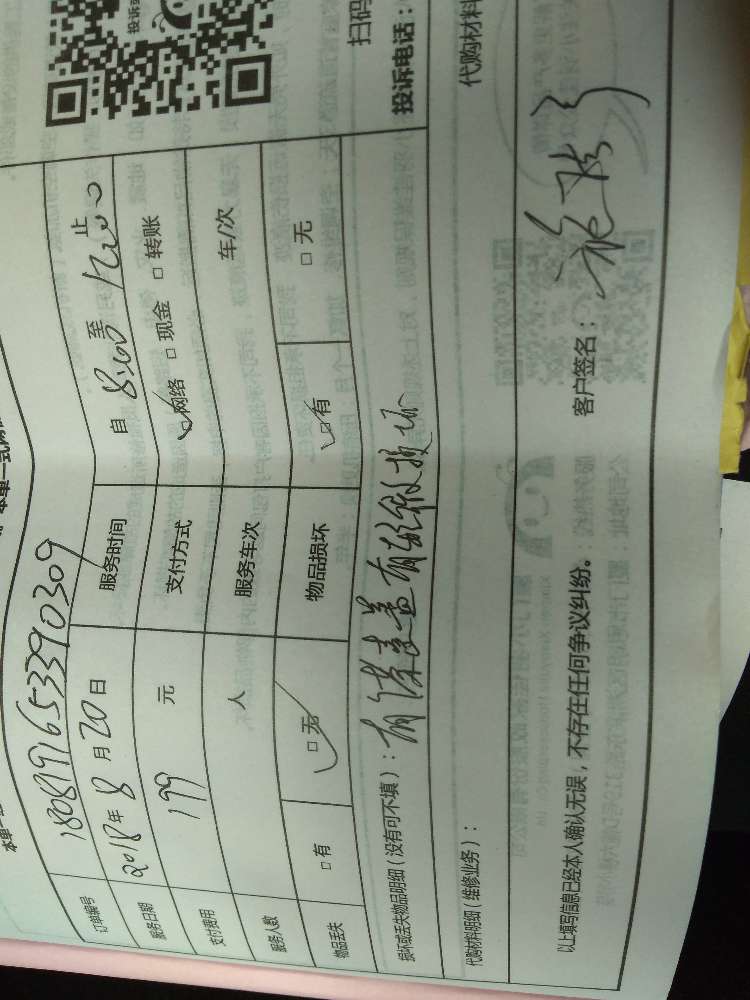 本单一式两
订单编号 1808191653390309
服务日期 2018年8月20日 服务时间 自 8:00 至 12:00 止
支付费用 199 元 支付方式 ☑网络 □现金 □转账
服务人数 人 服务车次 车/次
物品丢失 □有 ☑无 物品损坏 ☑有 □无
损坏或丢失物品明细(没有可不填): 有 有 微 损坏
投诉或
扫码
投诉电话:
代购材料明细(维修业务):
代购材料
以上填写信息已经本人确认无误,不存在任何争议纠纷。
客户签名: